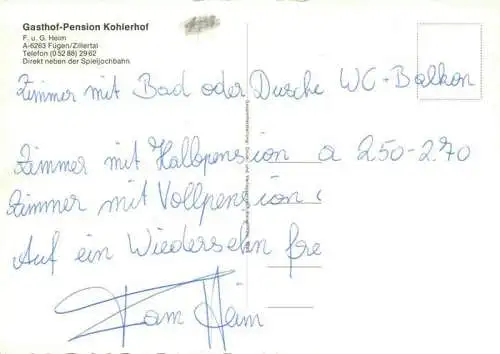 Gasthof-Pension Kohlerhof
F. u. G. Heim
A-6263 Fügen/Zillertal
Telefon (0 52 88) 29 62
Direkt neben der Spieljochbahn
Zimmer mit Bad oder Dusche WC - Balkon
Zimmer mit Halbpension a 250-270
Zimmer mit Vollpension
Auf ein Wiedersehn fre
Fam Heim